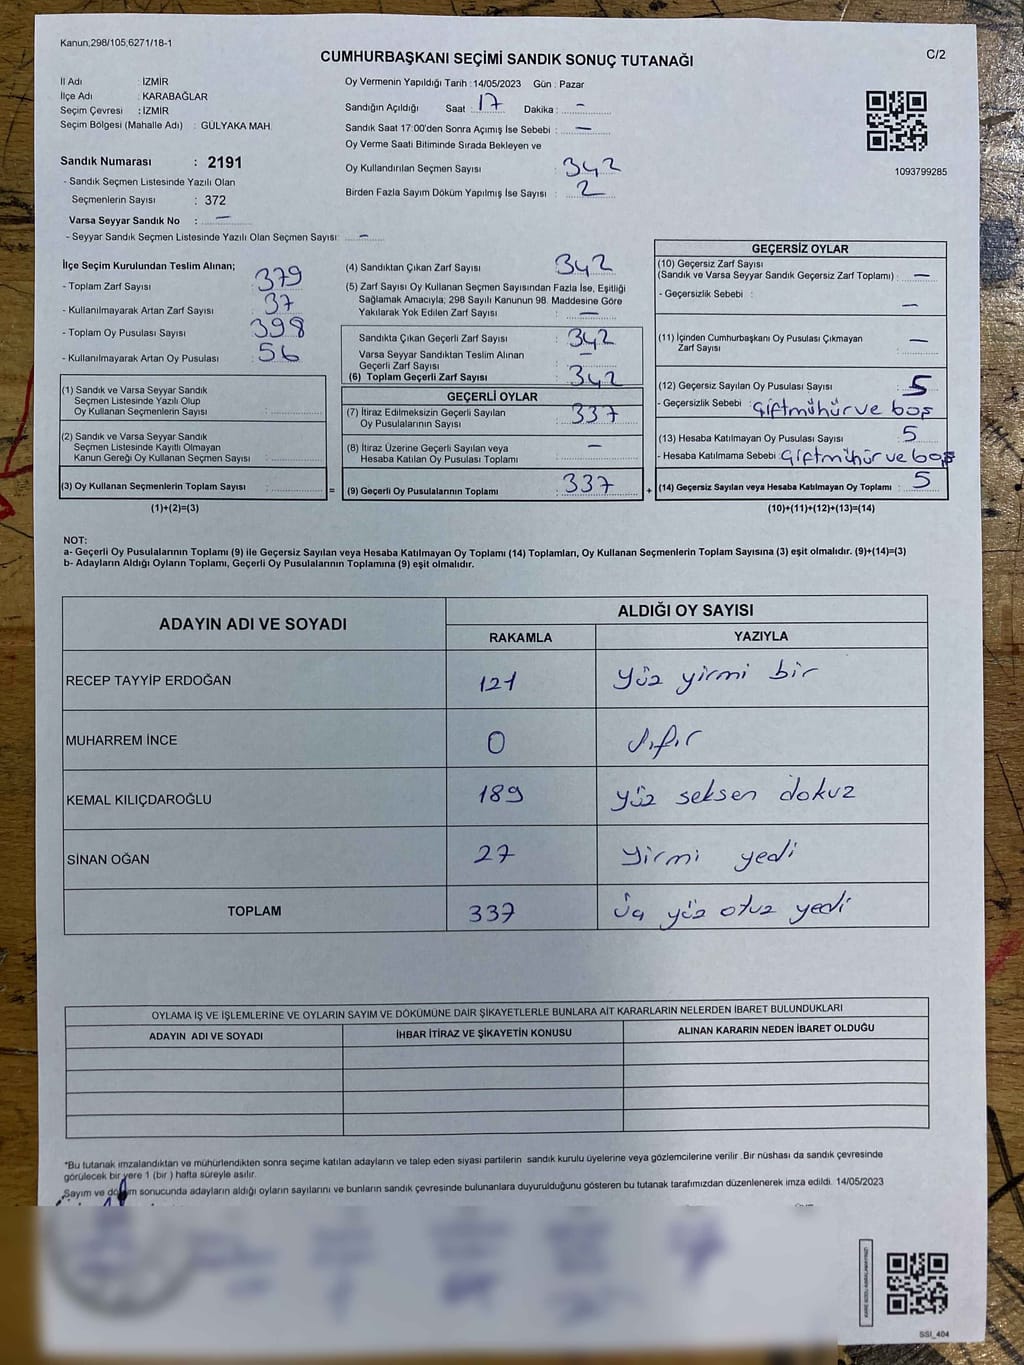 Kanun,298/105,6271/18-1
C/2
CUMHURBAŞKANI SEÇİMİ SANDIK SONUÇ TUTANAĞI
İl Adı : İZMİR
İlçe Adı : KARABAĞLAR
Seçim Çevresi : İZMİR
Seçim Bölgesi (Mahalle Adı) : GÜLYAKA MAH.
Sandık Numarası : 2191
- Sandık Seçmen Listesinde Yazılı Olan
Seçmenlerin Sayısı : 372
Varsa Seyyar Sandık No : —
- Seyyar Sandık Seçmen Listesinde Yazılı Olan Seçmen Sayısı: —
Oy Vermenin Yapıldığı Tarih : 14/05/2023 Gün : Pazar
Sandığın Açıldığı Saat : 17 Dakika : —
Sandık Saat 17:00'den Sonra Açımış İse Sebebi : —
Oy Verme Saati Bitiminde Sırada Bekleyen ve
Oy Kullandırılan Seçmen Sayısı : 342
Birden Fazla Sayım Döküm Yapılmış İse Sayısı : 2
1093799285
İlçe Seçim Kurulundan Teslim Alınan;
- Toplam Zarf Sayısı : 379
- Kullanılmayarak Artan Zarf Sayısı : 37
- Toplam Oy Pusulası Sayısı : 398
- Kullanılmayarak Artan Oy Pusulası : 56
(1) Sandık ve Varsa Seyyar Sandık
Seçmen Listesinde Yazılı Olup
Oy Kullanan Seçmenlerin Sayısı :
(2) Sandık ve Varsa Seyyar Sandık
Seçmen Listesinde Kayıtlı Olmayan
Kanun Gereği Oy Kullanan Seçmen Sayısı :
(3) Oy Kullanan Seçmenlerin Toplam Sayısı :
(1)+(2)=(3)
(4) Sandıktan Çıkan Zarf Sayısı : 342
(5) Zarf Sayısı Oy Kullanan Seçmen Sayısından Fazla İse, Eşitliği
Sağlamak Amacıyla; 298 Sayılı Kanunun 98. Maddesine Göre
Yakılarak Yok Edilen Zarf Sayısı : —
Sandıkta Çıkan Geçerli Zarf Sayısı : 342
Varsa Seyyar Sandıktan Teslim Alınan
Geçerli Zarf Sayısı : —
(6) Toplam Geçerli Zarf Sayısı : 342
GEÇERLİ OYLAR
(7) İtiraz Edilmeksizin Geçerli Sayılan
Oy Pusulalarının Sayısı : 337
(8) İtiraz Üzerine Geçerli Sayılan veya
Hesaba Katılan Oy Pusulası Toplamı : —
= (9) Geçerli Oy Pusulalarının Toplamı : 337 +
GEÇERSİZ OYLAR
(10) Geçersiz Zarf Sayısı
(Sandık ve Varsa Seyyar Sandık Geçersiz Zarf Toplamı) : —
- Geçersizlik Sebebi : —
(11) İçinden Cumhurbaşkanı Oy Pusulası Çıkmayan
Zarf Sayısı : —
(12) Geçersiz Sayılan Oy Pusulası Sayısı : 5
- Geçersizlik Sebebi : Çiftmühür ve boş
(13) Hesaba Katılmayan Oy Pusulası Sayısı : 5
- Hesaba Katılmama Sebebi : Çiftmühür ve boş
(14) Geçersiz Sayılan veya Hesaba Katılmayan Oy Toplamı : 5
(10)+(11)+(12)+(13)=(14)
NOT:
a- Geçerli Oy Pusulalarının Toplamı (9) ile Geçersiz Sayılan veya Hesaba Katılmayan Oy Toplamı (14) Toplamları, Oy Kullanan Seçmenlerin Toplam Sayısına (3) eşit olmalıdır. (9)+(14)=(3)
b- Adayların Aldığı Oyların Toplamı, Geçerli Oy Pusulalarının Toplamına (9) eşit olmalıdır.
ADAYIN ADI VE SOYADI
ALDIĞI OY SAYISI
RAKAMLA YAZIYLA
RECEP TAYYİP ERDOĞAN 121 yüz yirmi bir
MUHARREM İNCE 0 sıfır
KEMAL KILIÇDAROĞLU 189 yüz seksen dokuz
SİNAN OĞAN 27 yirmi yedi
TOPLAM 337 üç yüz otuz yedi
OYLAMA İŞ VE İŞLEMLERİNE VE OYLARIN SAYIM VE DÖKÜMÜNE DAİR ŞİKAYETLERLE BUNLARA AİT KARARLARIN NELERDEN İBARET BULUNDUKLARI
ADAYIN ADI VE SOYADI İHBAR İTİRAZ VE ŞİKAYETİN KONUSU ALINAN KARARIN NEDEN İBARET OLDUĞU
*Bu tutanak imzalandıktan ve mühürlendikten sonra seçime katılan adayların ve talep eden siyasi partilerin sandık kurulu üyelerine veya gözlemcilerine verilir .Bir nüshası da sandık çevresinde
görülecek bir yere 1 (bir ) hafta süreyle asılır.
Sayım ve döküm sonucunda adayların aldığı oyların sayılarını ve bunların sandık çevresinde bulunanlara duyurulduğunu gösteren bu tutanak tarafımızdan düzenlenerek imza edildi. 14/05/2023
SSI_404